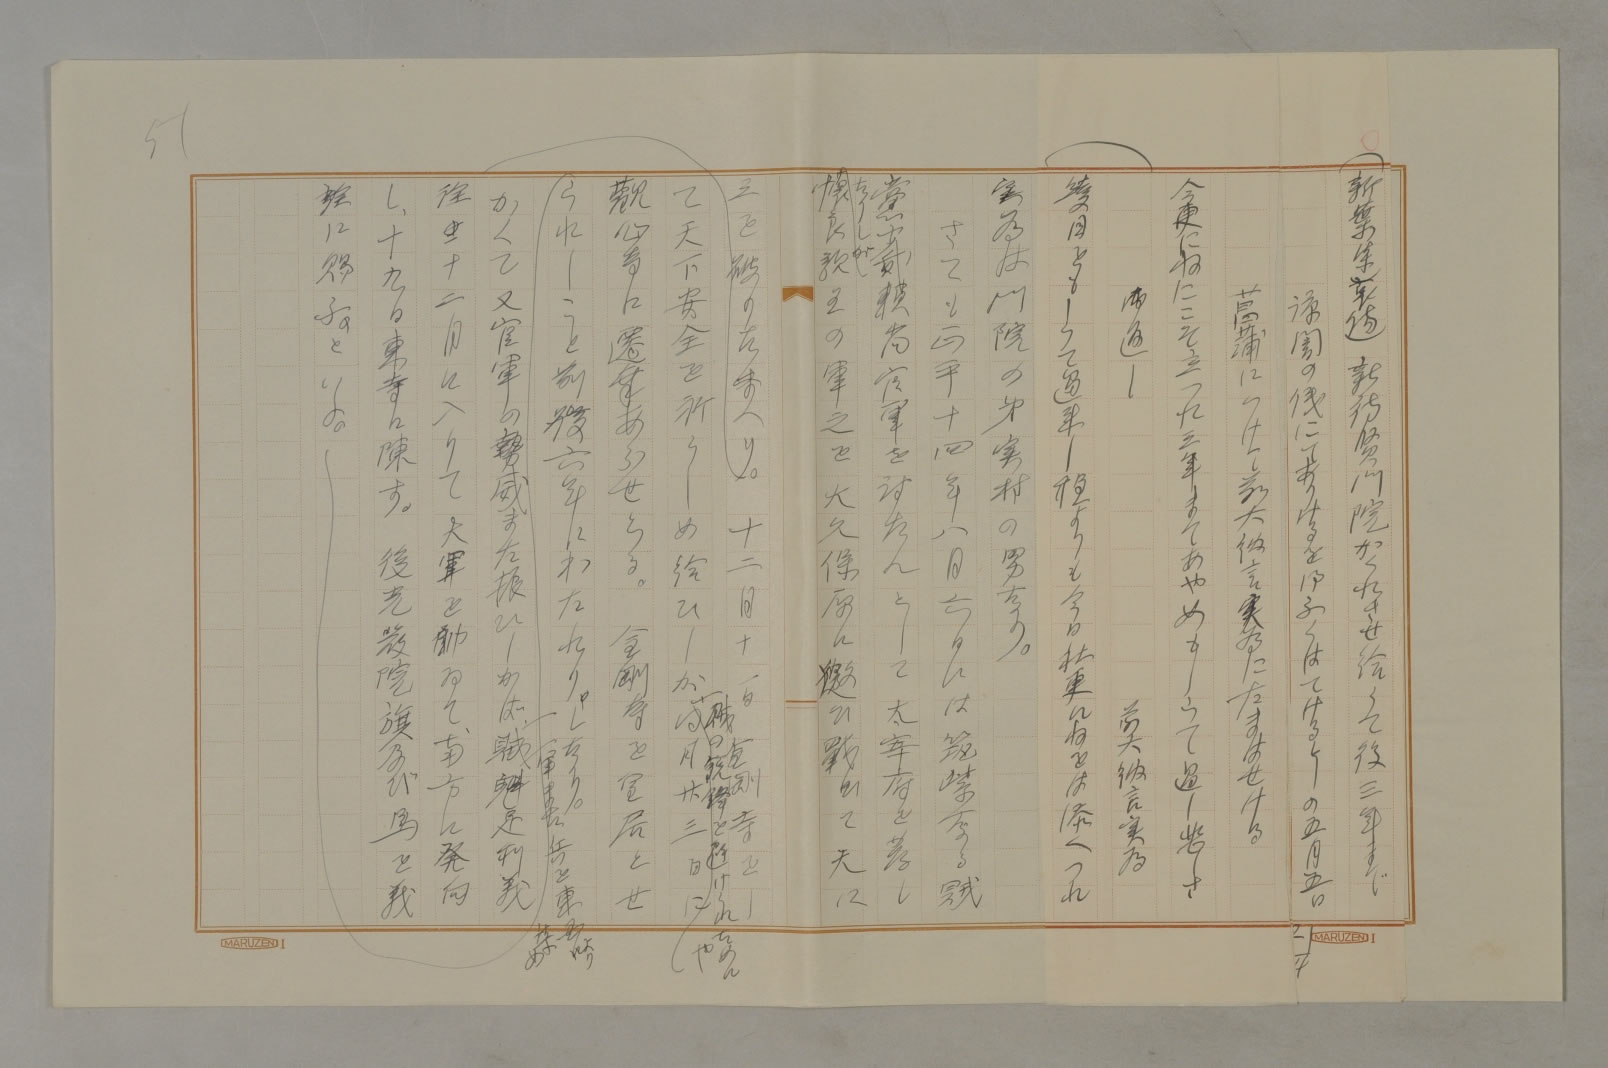 新葉集哀傷 新待賢門院かくれさせ給うて後三年まで
諒闇の儀にてありけるを思ふくはてけるとしの五月五日
菖蒲につけて前大納言実為にたまはせける
今更にねにこそ立つれ三年まてあやめもしらて過し悲さ
御返し
前大納言実為
幾月ともしらて過来し袖よりも今日は更にねをは添へつれ
実為は門院の弟実村の男なり。
さても正平十四年八月六日には筑紫なる賊
党少貳頼尚官軍を討たんとして太宰府を発し
たりしが
懐良親王の軍之を大久保原に邀ひ戦ひて大に
之を破りたまへり。十二月十一日金剛寺をし
て天下安全を祈らしめ給ひしが同月廿三日に
賊の鋭鋒を避けられたるにや
観心寺に遷幸あらせらる。金剛寺を皇居とせ
られしこと前後六年にわたれりしなり。
かくて又官軍の勢威また振ひしかば、賊魁足利義
一軍を率ゐ兵を東
詮出十二月に入りて大軍を動かして南方に発向
し、十九日東寺に陳す。後光厳院旗及び馬を義
詮に賜ふといふ。
51
MARUZEN I
MARUZEN I